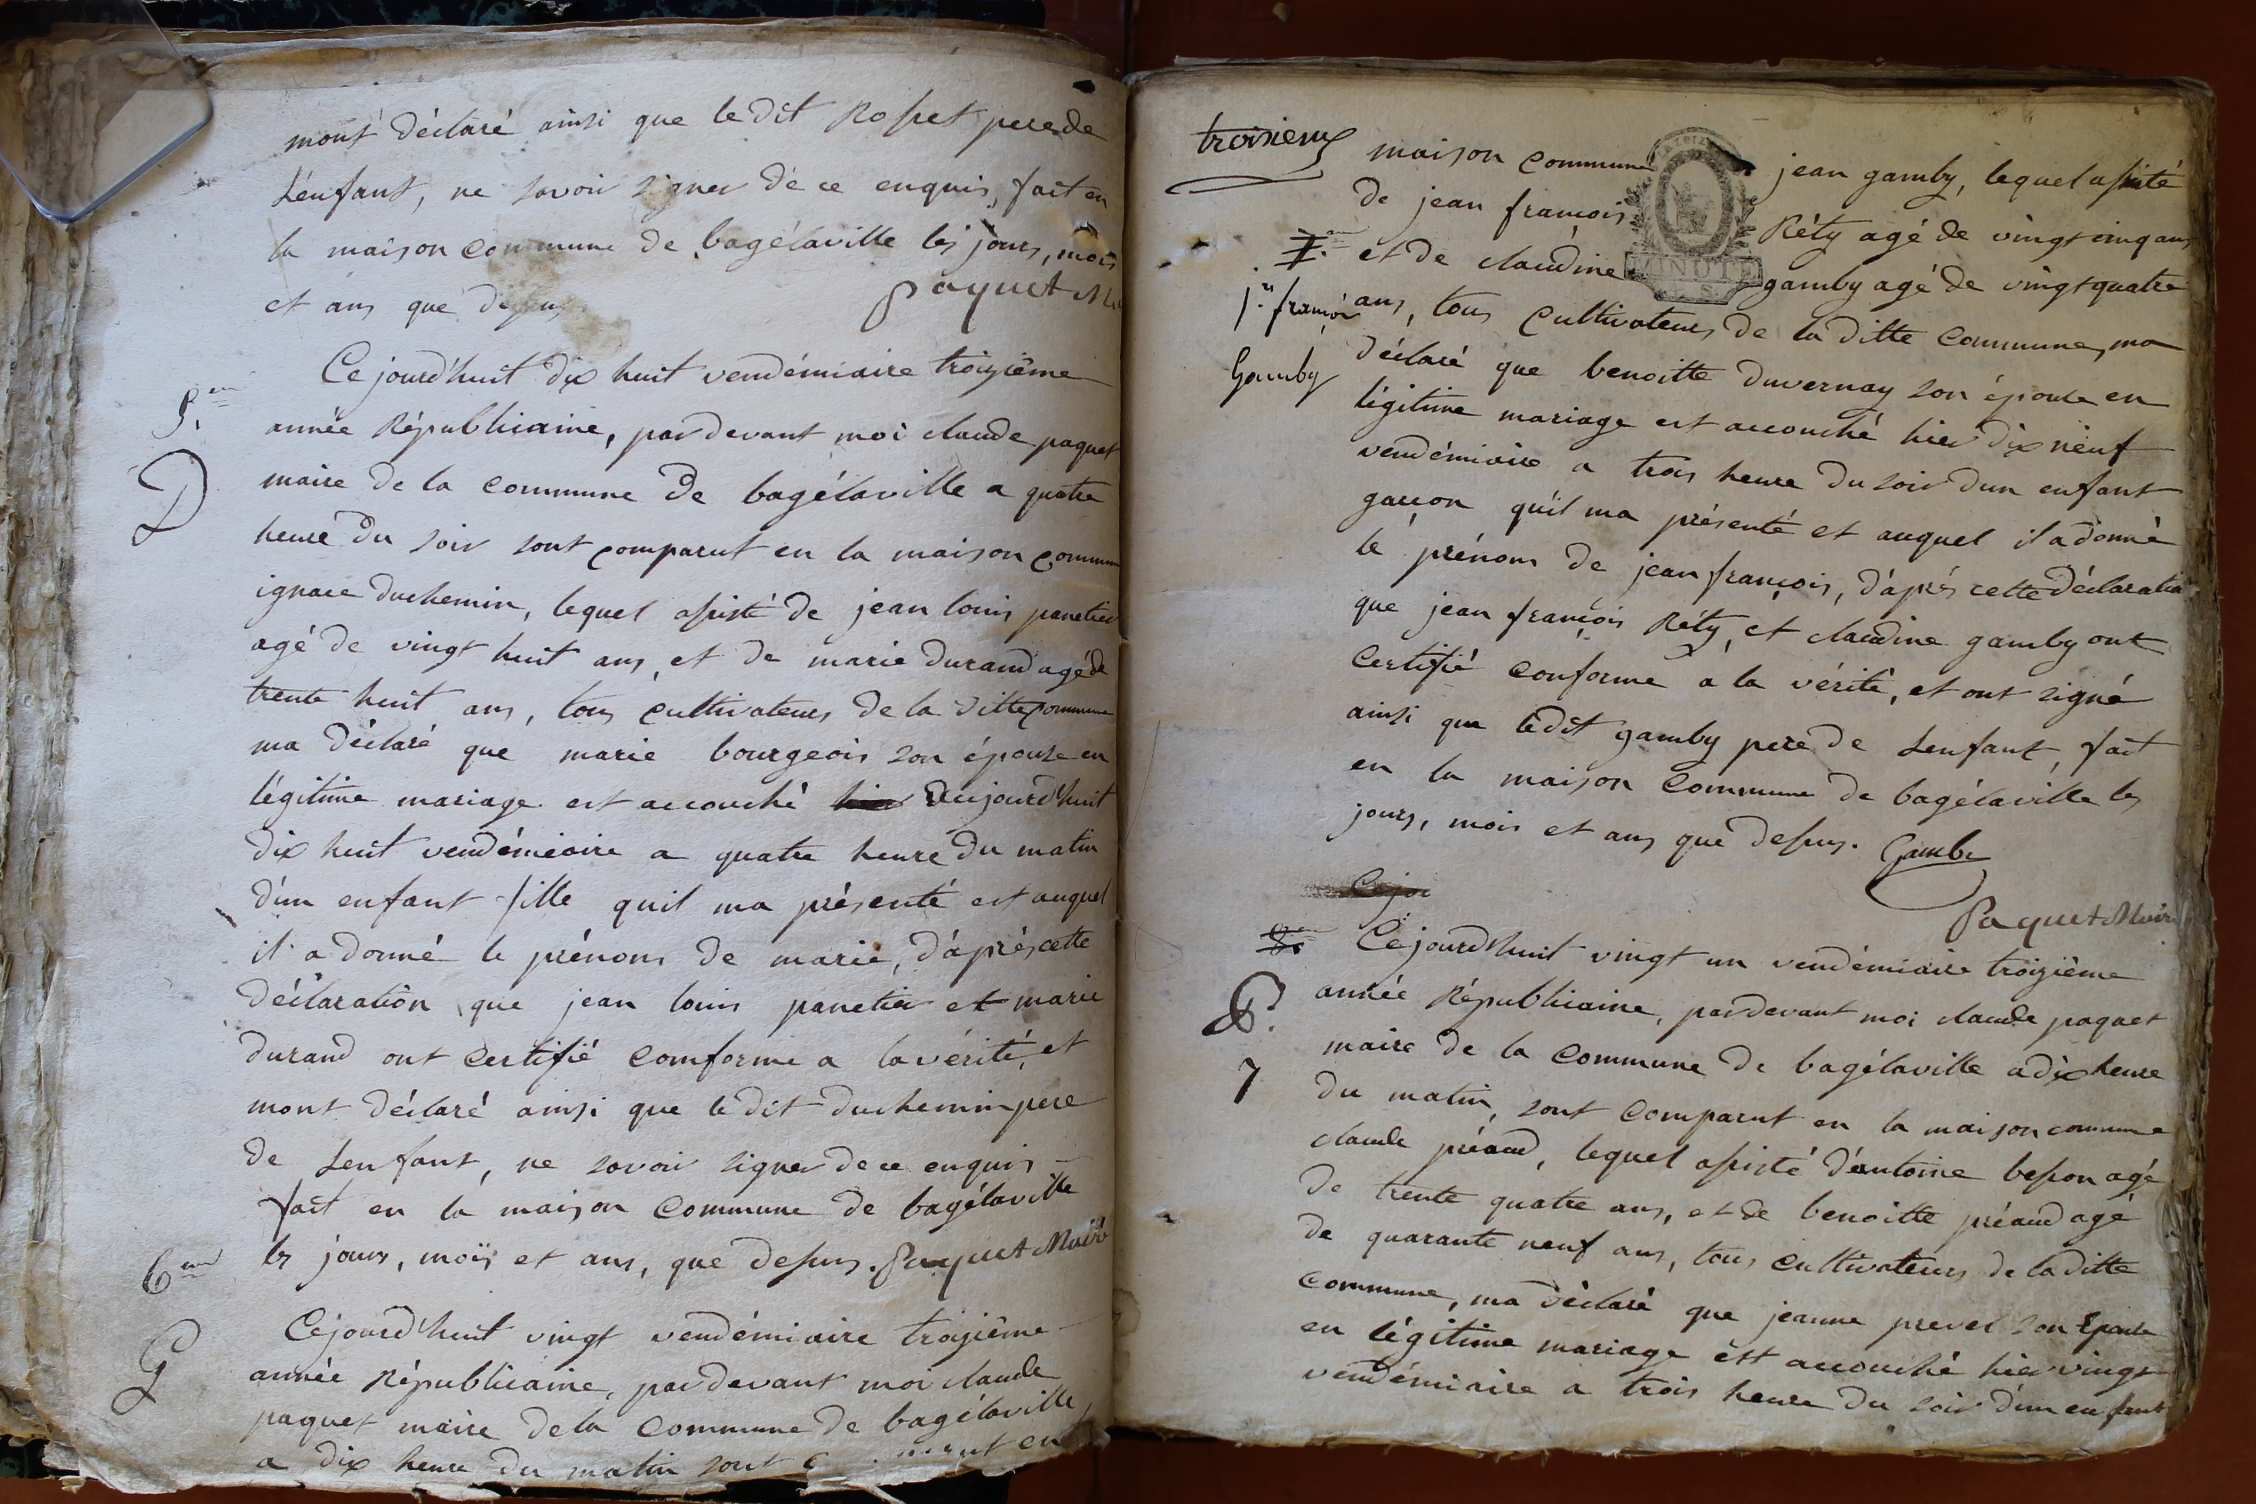 mont déclaré ainsi que ledit Rosset pere de
L'enfant, ne savoir signer de ce enquis, fait en
la maison commune de bagélaville les jours, mois
et ans que dessus
paquet
5.em
D
Ce jourd'huit dix huit vendémiaire troizième
année Républicaine, pardevant moi claude paquet
maire de la commune de bagélaville a quatre
heure du soir sont comparut en la maison commune
ignace duchemin, lequel assisté de jean louis panetier
agé de vingt huit ans, et de marie durand agé de
trente huit ans, tous cultivateurs de la ditte commune
ma déclaré que marie bourgeois son épouse en
légitime mariage est accouché hier aujourd'huit
dix huit vendémiaire a quatre heure du matin
d'un enfant fille quil ma présenté et auquel
il a donné le prénom de marie, d'après cette
déclaration que jean louis panetier et marie
durand ont certifié comforme a la vérité, et
mont déclaré ainsi que ledit duchemin pere
de Lenfant, ne savoir signer de ce enquis
fait en la maison commune de bagélaville
les jours, mois et ans, que dessus. Paquet Maire
6em
G
Ce jourd'huit vingt vendémiaire troizième
année Républicaine, pardevant moi claude
paquet maire de la commune de bagélaville,
a dix heure du matin sont
troisieme
7.em
j.n françois
Gamby
MINUTE
maison commune jean gamby, lequel assisté
de jean françois Réty agé de vingt cinq ans
et de claudine gamby agé de vingt quatre
ans, tous cultivateurs de la ditte commune, ma
déclaré que benoitte duvernay son épouse en
légitime mariage est accouché hier dix neuf
vendémiaire a trois heure du soir dun enfant
garcon qu'il ma présenté et auquel il a donné
le prénom de jean françois, d'après cette déclaration
que jean françois Réty, et claudine gamby ont
certifié conforme a la vérité, et ont signé
ainsi que ledit gamby pere de Lenfant, fait
en la maison commune de bagélaville les
jours, mois et ans que dessus. Gamby
Paquet Maire
Cejou
8.em
P.
7
Ce jourd'huit vingt un vendémiaire troizième
année Républicaine, pardevant moi claude paquet
maire de la commune de bagélaville a dix heure
du matin, sont comparut en la maison commune
claude préaud, lequel assisté d'antoine besson agé
de trente quatre ans, et de benoitte préaud agé
de quarante neuf ans, tous cultivateurs de la ditte
commune, ma déclaré que jeanne prevel son Epouse
en légitime mariage est accouché hier vingt
vendémiaire a trois heure du soir d'un enfant